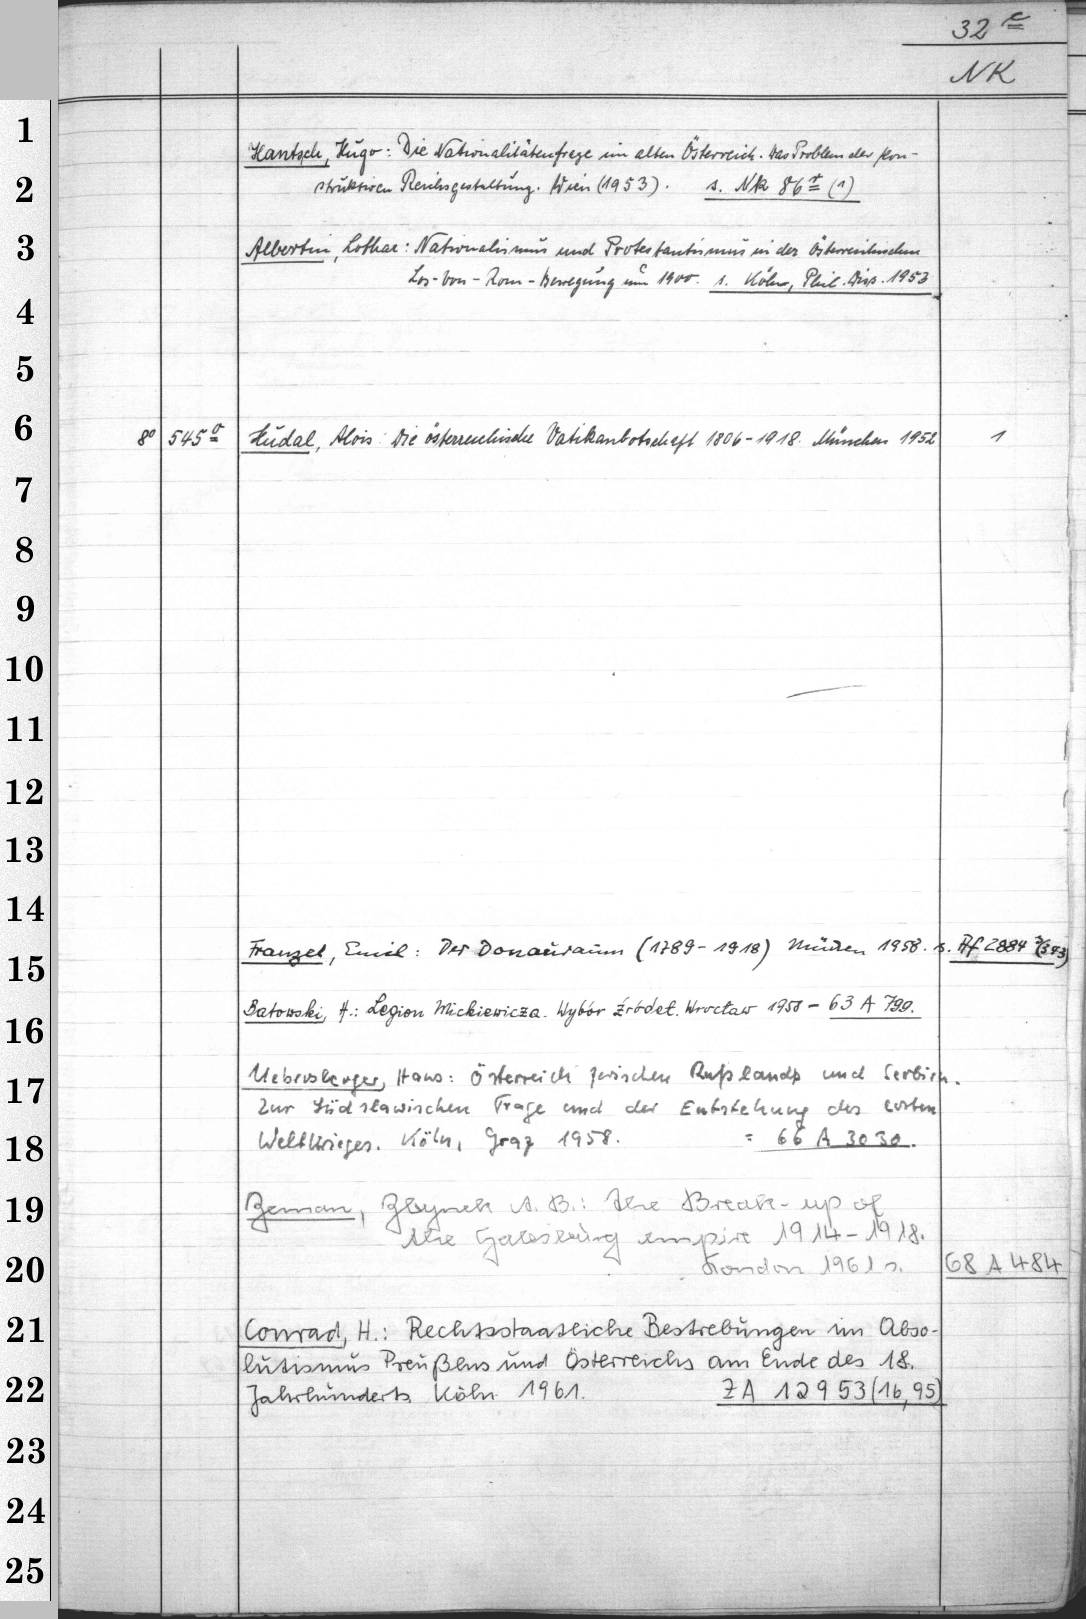 32 e
NK
1
Hantsch, Hugo: Die Nationalitätenfrage im alten Österreich. Das Problem der kon-
2 struktiven Reichsgestaltung. Wien (1953). s. Nk 86 r (1)
3 Albertin, Lothar: Nationalismus und Protestantismus in der österreichischen
Los-von-Rom-Bewegung um 1900. s. Köln, Phil. Diss. 1953
4
5
6 8° 545 o Hudal, Alois: Die österreichische Vatikanbotschaft 1806-1918. München 1952 1
7
8
9
10
11
12
13
14
15 Franzel, Emil: Der Donauraum (1789-1918) München 1958. s. Af 2884 (373)
16 Batowski, H.: Legion Mickiewicza. Wybór źródeł. Wrocław 1958 - 63 A 799.
17 Uebersberger, Hans: Österreich zwischen Rußland und Serbien.
Zur Südslawischen Frage und der Entstehung des ersten
18 Weltkrieges. Köln, Graz 1958. = 66 A 3030.
19 Zeman, Zbynek A. B.: The Break-up of
the Habsburg empire 1914-1918.
20 London 1961 s. 68 A 484
21 Conrad, H.: Rechtsstaatliche Bestrebungen im Abso-
lutismus Preußens und Österreichs am Ende des 18.
22 Jahrhunderts Köln 1961. ZA 12953(16,95)
23
24
25